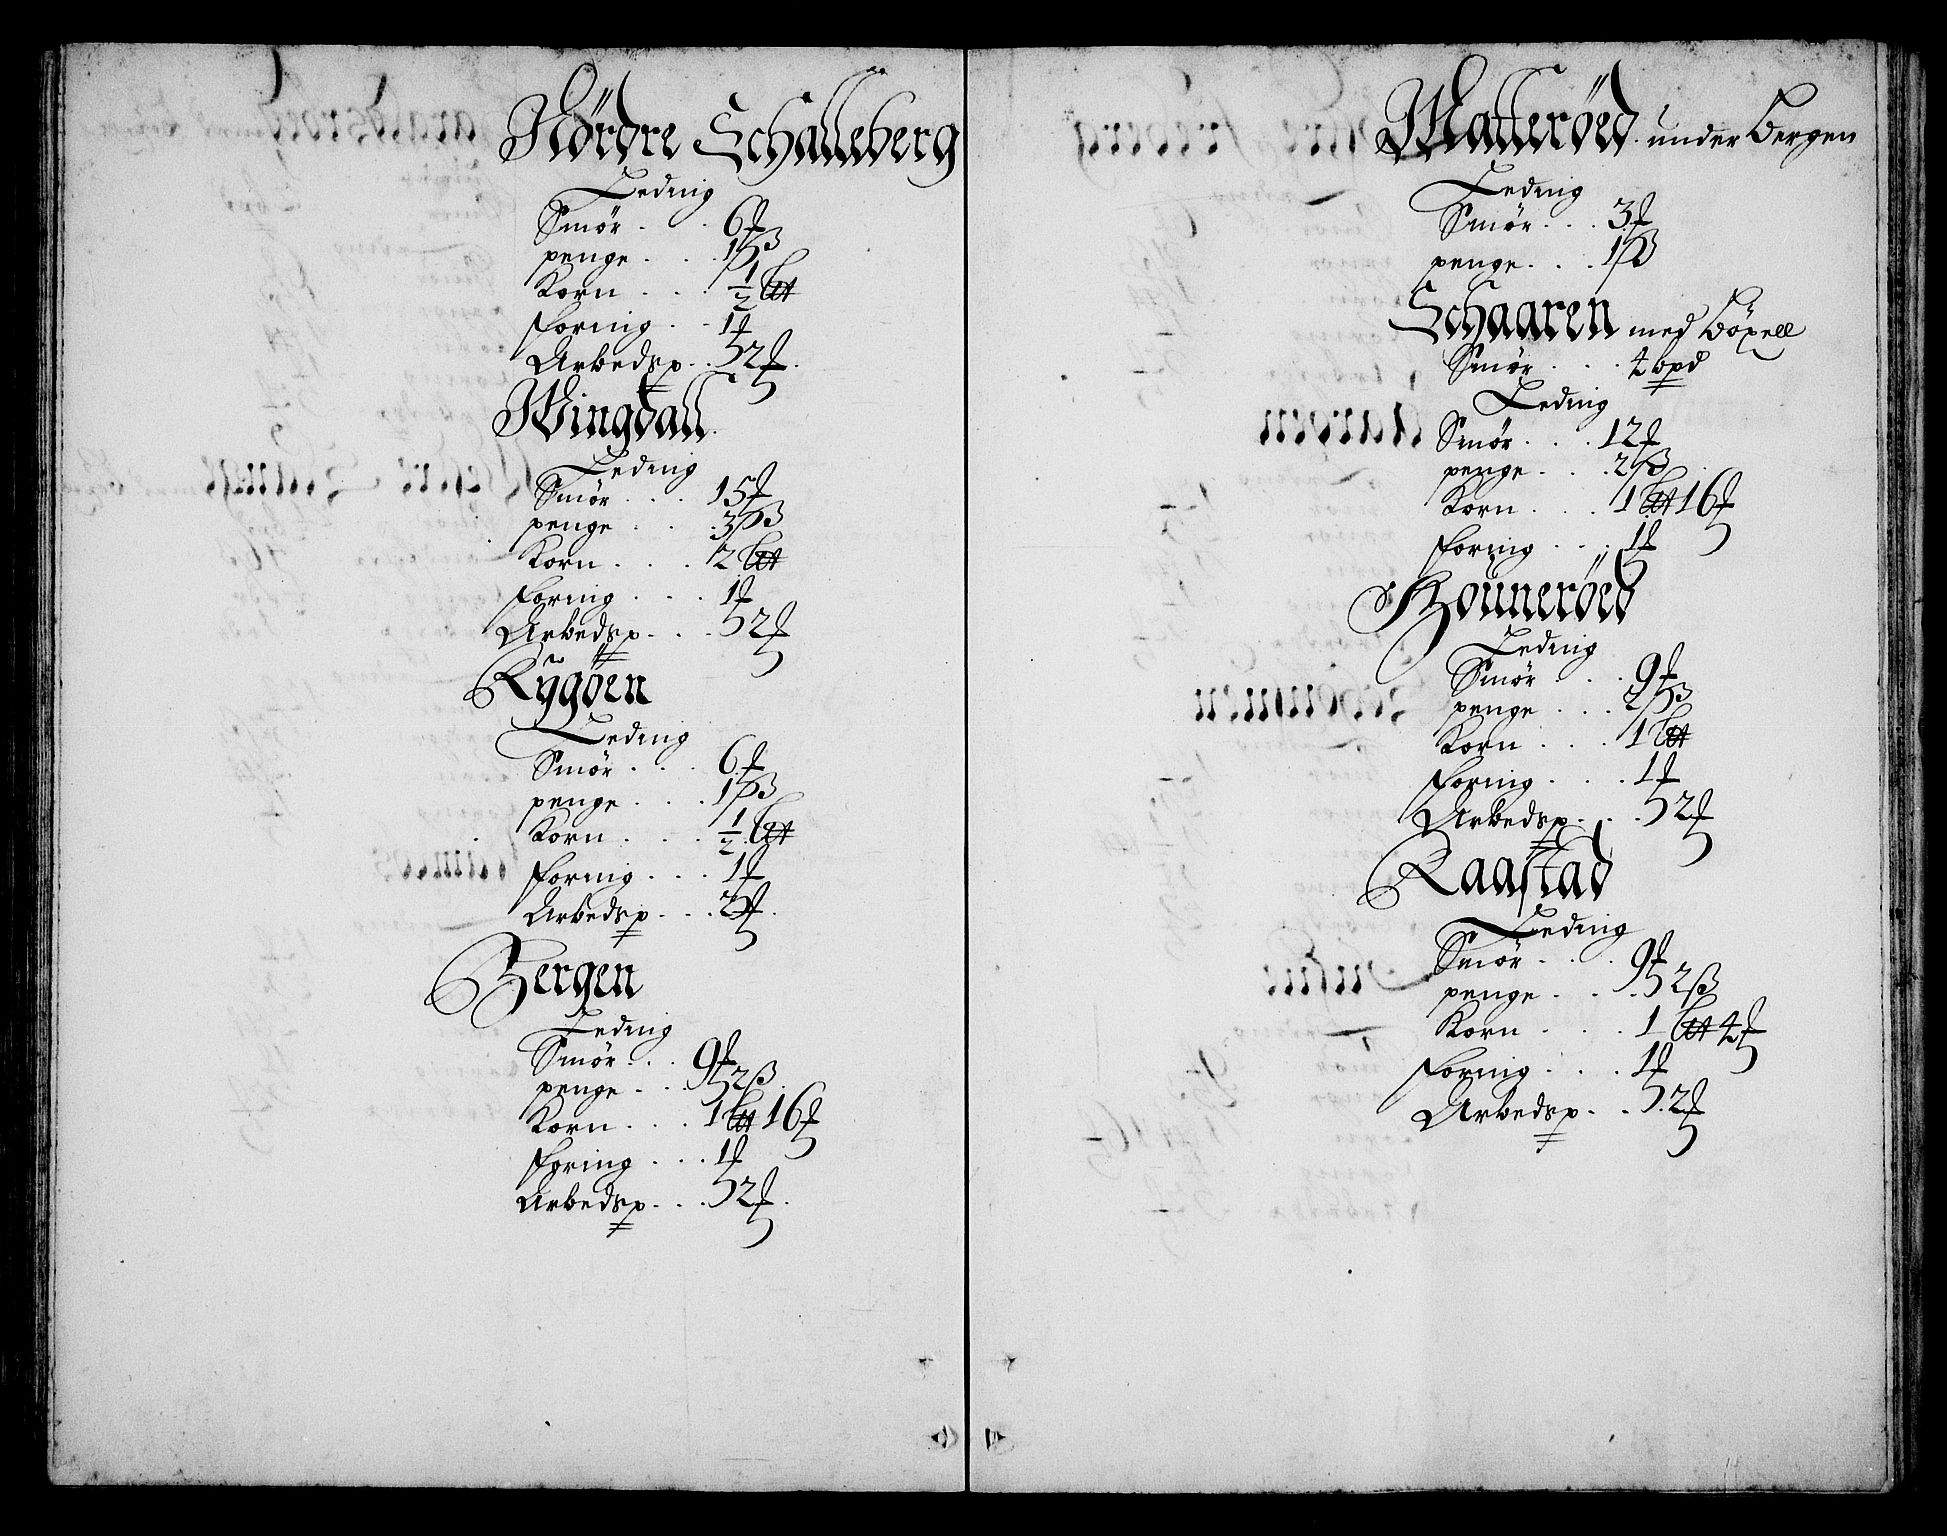 Nørdre Schalleberg
Leding
Smør . . 6
penge . . . 1 ß
Korn . . . ½
foring . . 1
Arbedsp . . 2
Wingdall
Leding
Smør . . . 15
penge . . . 3 ß
Korn . . . . 2
foring . . . 1
Arbedsp . . . 2
Rÿgøen
Leding
Smør . . . 6
penge . . . . 1 ß
Korn . . . . ½
foring . . . 1
Arbedsp . . . 2
Bergen
Leding
Smør . . . 9
penge . . . 2 ß
Korn . . . 1 16
foring . . . 1
Arbedsp . . . 2
Matterøed under Bergen
Leding
Smør . . . 3
penge . . . 1 ß
Schaaren med
Smør . . . . 4 bpd
Leding
Smør . . . . 12
penge . . . . 2 ß
Korn . . . . 1 16
foring . . . . 1
Leding
Smør . . . . 9
penge . . . 2 ß
Korn . . . . 1
foring . . . . 1
Arbedsp . . . 2
Raastad
Leding
Smør . . . . 9
penge . . . 2 ß
Korn . . . . 1 4
foring . . . . 1
Arbedsp . . . 2